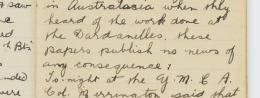 in Australacia when they
heard of the work done at
the Dardanelles, these
papers publish no news of
any consequence;
To-night at the Y. M. C. A.
Col. Merrington said that